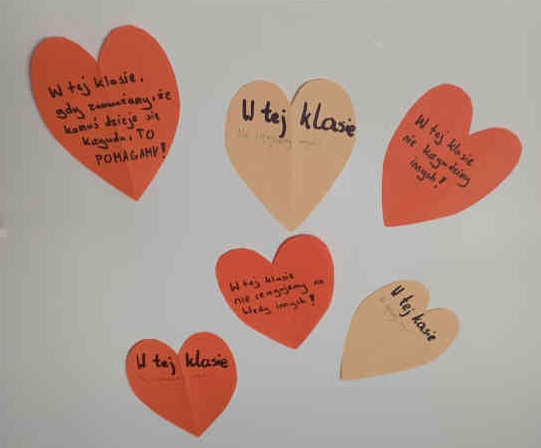 W tej klasie,
gdy zauważamy, że
komuś dzieje się
krzywda, TO
POMAGAMY!
W tej klasie
W tej klasie
nie krzywdzimy
innych!
W tej klasie
nie reagujemy na
błędy innych!
W tej kasie
W tej klasie